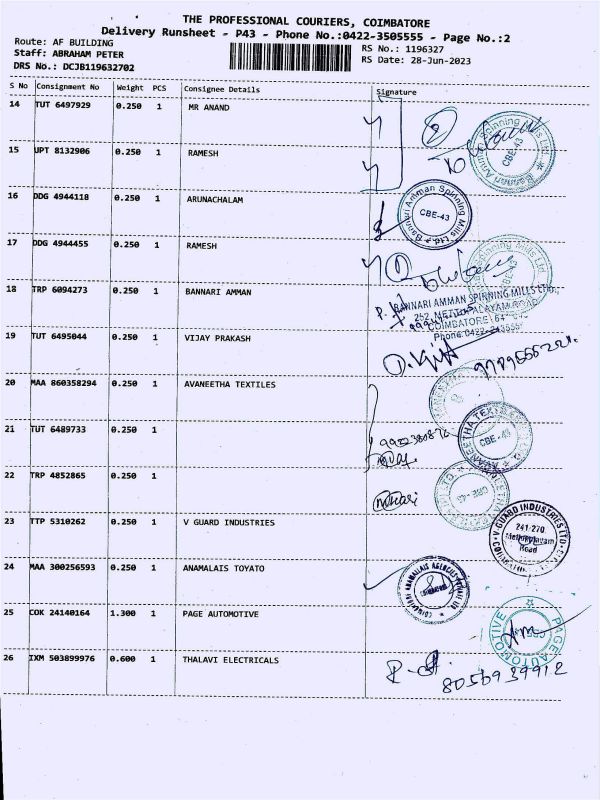 THE PROFESSIONAL COURIERS, COIMBATORE
Delivery Runsheet - P43 - Phone No.:0422-3505555 - Page No.:2
Route: AF BUILDING
Staff: ABRAHAM PETER
DRS No.: DCJB119632702
RS No.: 1196327
RS Date: 28-Jun-2023
S No Consignment No Weight PCS Consignee Details Signature
14 TUT 6497929 0.250 1 MR ANAND
15 UPT 8132906 0.250 1 RAMESH
16 DDG 4944118 0.250 1 ARUNACHALAM
17 DDG 4944455 0.250 1 RAMESH
18 TRP 6094273 0.250 1 BANNARI AMMAN
19 TUT 6495044 0.250 1 VIJAY PRAKASH
20 MAA 860358294 0.250 1 AVANEETHA TEXTILES
21 TUT 6489733 0.250 1
22 TRP 4852865 0.250 1
23 TTP 5310262 0.250 1 V GUARD INDUSTRIES
24 MAA 300256593 0.250 1 ANAMALAIS TOYATO
25 COK 24140164 1.300 1 PAGE AUTOMOTIVE
26 IXM 503899976 0.600 1 THALAVI ELECTRICALS
Bannari Amman Spinning Mills Ltd.
CBE-43
Bannari Amman Spinning Mills Ltd.
CBE-43
Spinning Mills Ltd.
CBE-43
BANNARI AMMAN SPINNING MILLS LTD.,
252, METTUPALAYAM ROAD,
COIMBATORE
Phone:0422-
AVANEETHA TEXTILES
CBE-43
V-GUARD INDUSTRIES LTD
241-270
Mettupalayam
Road
COIMBATORE
PAGE AUTOMOTIVE
8056939912